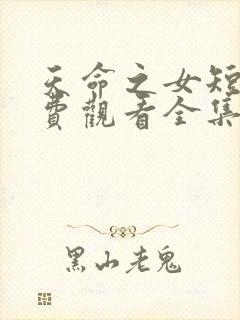 天命之女短
費觀看全集
黑山老鬼